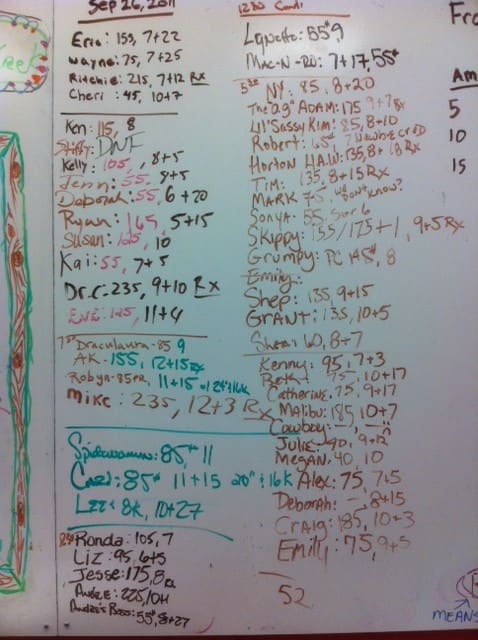 Sep 26, 2011
Eric: 155, 7+22
Wayne: 75, 7+25
Ritchie: 215, 7+12 Rx
Cheri: 45, 10+7
Ken: 115, 8
DNF
Kelly: 105, 8+5
Jenn: 55, 8+5
Deborah: 55, 6+20
Ryan: 165, 5+15
Susan: 125, 10
Kai: 55, 7+5
Dr.C. 235, 9+10 Rx
11+4
Draculaura: 85 9
AK: 155, 12+15
Robyn: 11+15
Mike: 235, 12+3 Rx
85# 11
85# 11+15 20" 16K
Lee: 8K, 10+27
Ronda: 105, 7
Liz: 95, 6+5
Jesse: 175, 8
Andre: 225/OH
Andre's Boss: 55#, 8+27
Lynette: 55# 9
Mac-N-Ro: 7+17, 55#
530 NY: 85, 8+20
The "ag" ADAM: 175 9+7 Rx
Lil' Sassy Kim: 85, 8+10
Robert: 65# 7
Horton H.A.W: 135, 8+18 Rx
Tim: 135, 8+15 Rx
MARK 75, we don't know?
Sonya: 55, 5 or 6
Skippy: 155/175+1, 9+5 Rx
Grumpy: 8
Emily:
Shep: 135, 9+15
GRANT: 135, 10+5
Shea: 60, 8+7
Kenny: 95, 7+3
Beth: 75, 10+17
Catherine: 75, 9+17
Malibu: 185, 10+7
Cowboy:
Julie: 90, 9+12
Megan: 40, 10
Alex: 75, 7+5
Deborah: -, 8+15
Craig: 185, 10+3
Emily: 75, 9+5
52
Fra
Am
5
10
15
MEANS